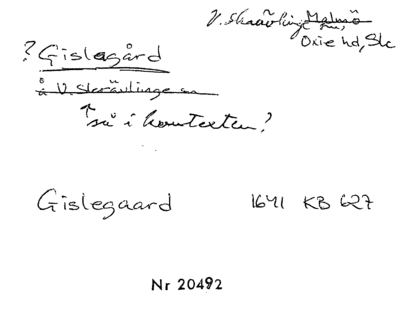 V. Skrävlinge Malmö
sn,
Oxie hd, Skc
? Gislegård
å V. Skrävlinge sn
så i kontexten?
Gislegaard 1641 KB 627
Nr 20492